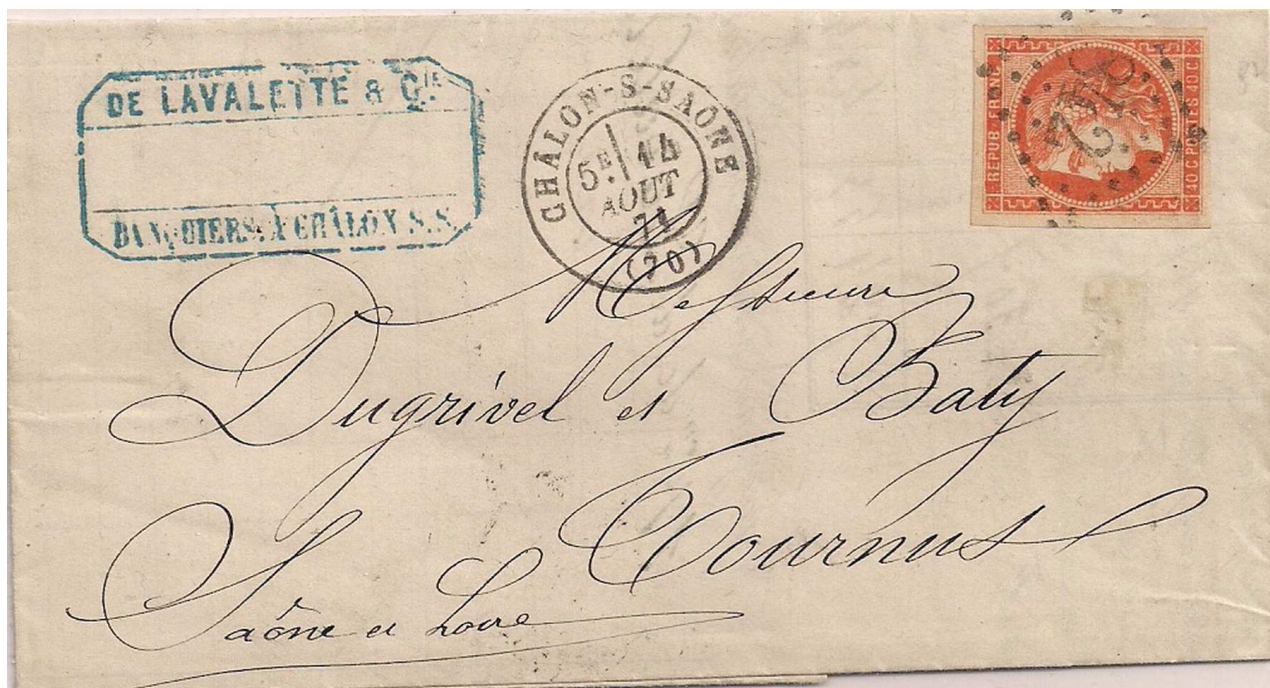 DE LAVALETTE & Cie.
BANQUIERS, À CHÂLON S.S.
CHÂLON-S-SAÔNE
5E 14
AOUT
71
(70)
REPUB. FRANC.
40 C POSTES 40 C
Messieurs
Dugrivel et Baty
Tournus
Saône et Loire